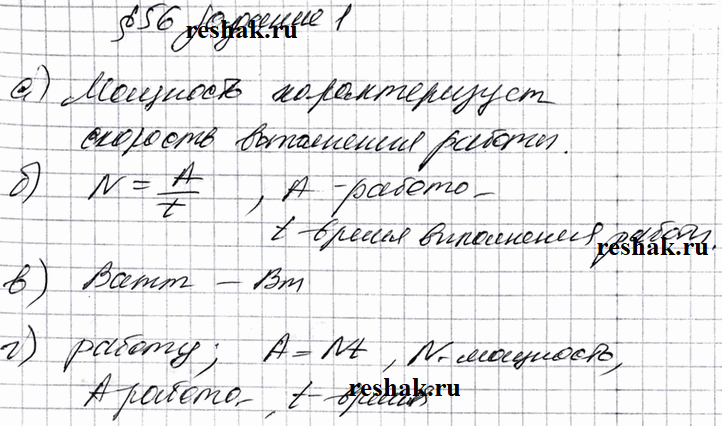 §56 Задание 1
reshak.ru
а) Мощность характеризует
скорость выполнения работы.
б) N = A/t , A - работа
t - время выполнения работы.
reshak.ru
в) Ватт – Вт
г) работу; A = Nt , N - мощность,
A работа , t - время
reshak.ru